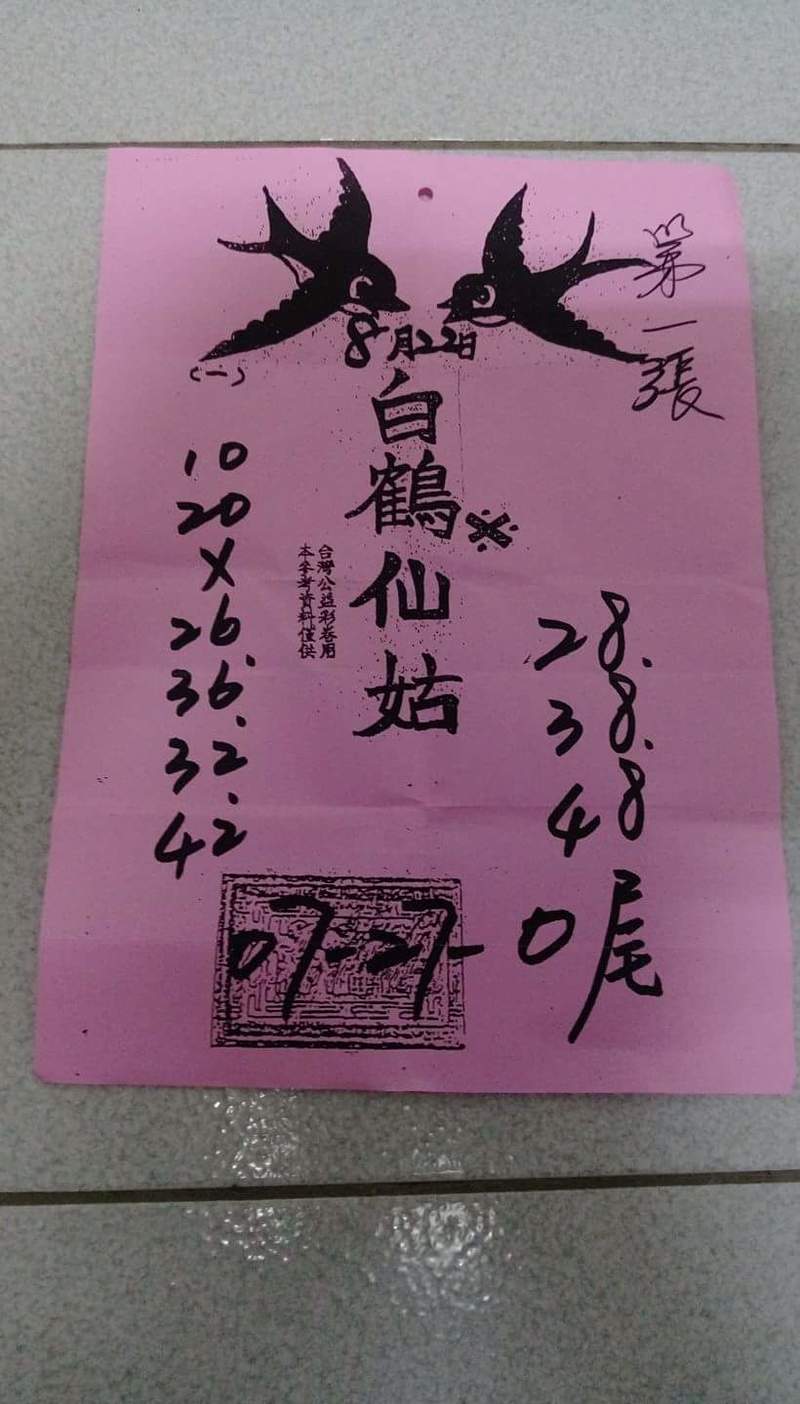 第一張
8月22日
(一)
白鶴仙姑
台灣公益彩卷用
本參考資料僅供
10
20
X
26.
36.
32.
42.
28.
38.
48
07-27-0尾